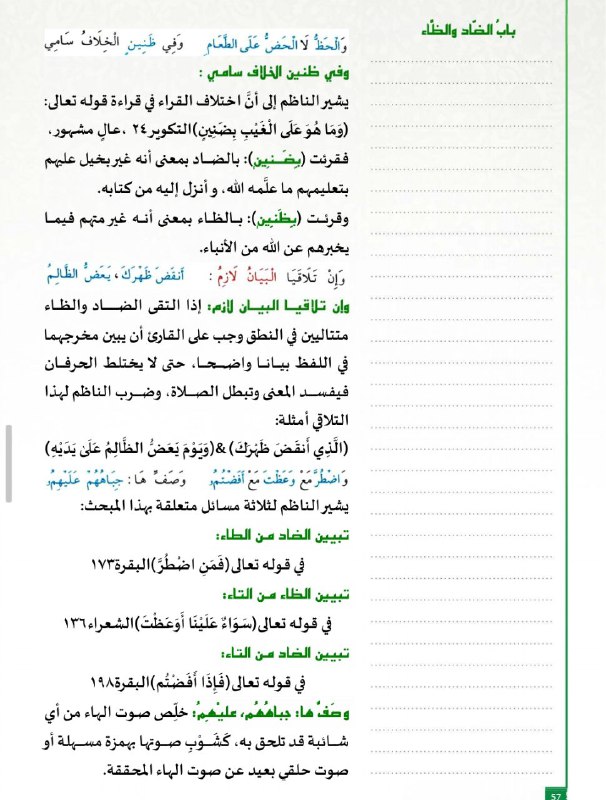 باب الضّاد والظّاء
وَالْحَظُّ لَا الْحَضُّ عَلَى الطَّعَامِ وَفِي ظَنِينٍ الْخِلَافُ سَامِي
وفي ظنين الخلاف سامي :
يشير الناظم إلى أنَّ اختلاف القراء في قراءة قوله تعالى:
(وَمَا هُوَ عَلَى الْغَيْبِ بِضَنِينٍ)التكوير٢٤ ،عالٍ مشهور،
فقرئت (بِضَنِينٍ): بالضاد بمعنى أنه غير بخيل عليهم
بتعليمهم ما علَّمه الله، و أنزل إليه من كتابه.
وقرئت (بِظَنِينٍ): بالظاء بمعنى أنه غير متهم فيما
يخبرهم عن الله من الأنباء.
وَإِنْ تَلَاقَيَا الْبَيَانُ لَازِمُ : أَنقَضَ ظَهْرَكَ، يَعَضُّ الظَّالِمُ
وإن تلاقيا البيان لازم: إذا التقى الضاد والظاء
متتاليين في النطق وجب على القارئ أن يبين مخرجهما
في اللفظ بيانا واضحا، حتى لا يختلط الحرفان
فيفسد المعنى وتبطل الصلاة، وضرب الناظم لهذا
التلاقي أمثلة:
(الَّذِي أَنقَضَ ظَهْرَكَ)&(وَيَوْمَ يَعَضُّ الظَّالِمُ عَلَىٰ يَدَيْهِ)
وَاضْطُرَّ مَعْ وَعَظْتَ مَعْ أَفَضْتُمُ وَصَفِّ هَا: جِبَاهُهُمْ عَلَيْهِمُ
يشير الناظم لثلاثة مسائل متعلقة بهذا المبحث:
تبيين الضاد من الطاء:
في قوله تعالى(فَمَنِ اضْطُرَّ)البقرة١٧٣
تبيين الظاء من التاء:
في قوله تعالى(سَوَاءٌ عَلَيْنَا أَوَعَظْتَ)الشعراء١٣٦
تبيين الضاد من التاء:
في قوله تعالى(فَإِذَا أَفَضْتُم)البقرة١٩٨
وصَفِّ ها: جباهُهُم، عليْهِمُ: خلِّص صوت الهاء من أي
شائبة قد تلحق به، كَشَوْبِ صوتها بهمزة مسهلة أو
صوت حلقي بعيد عن صوت الهاء المحققة.
57